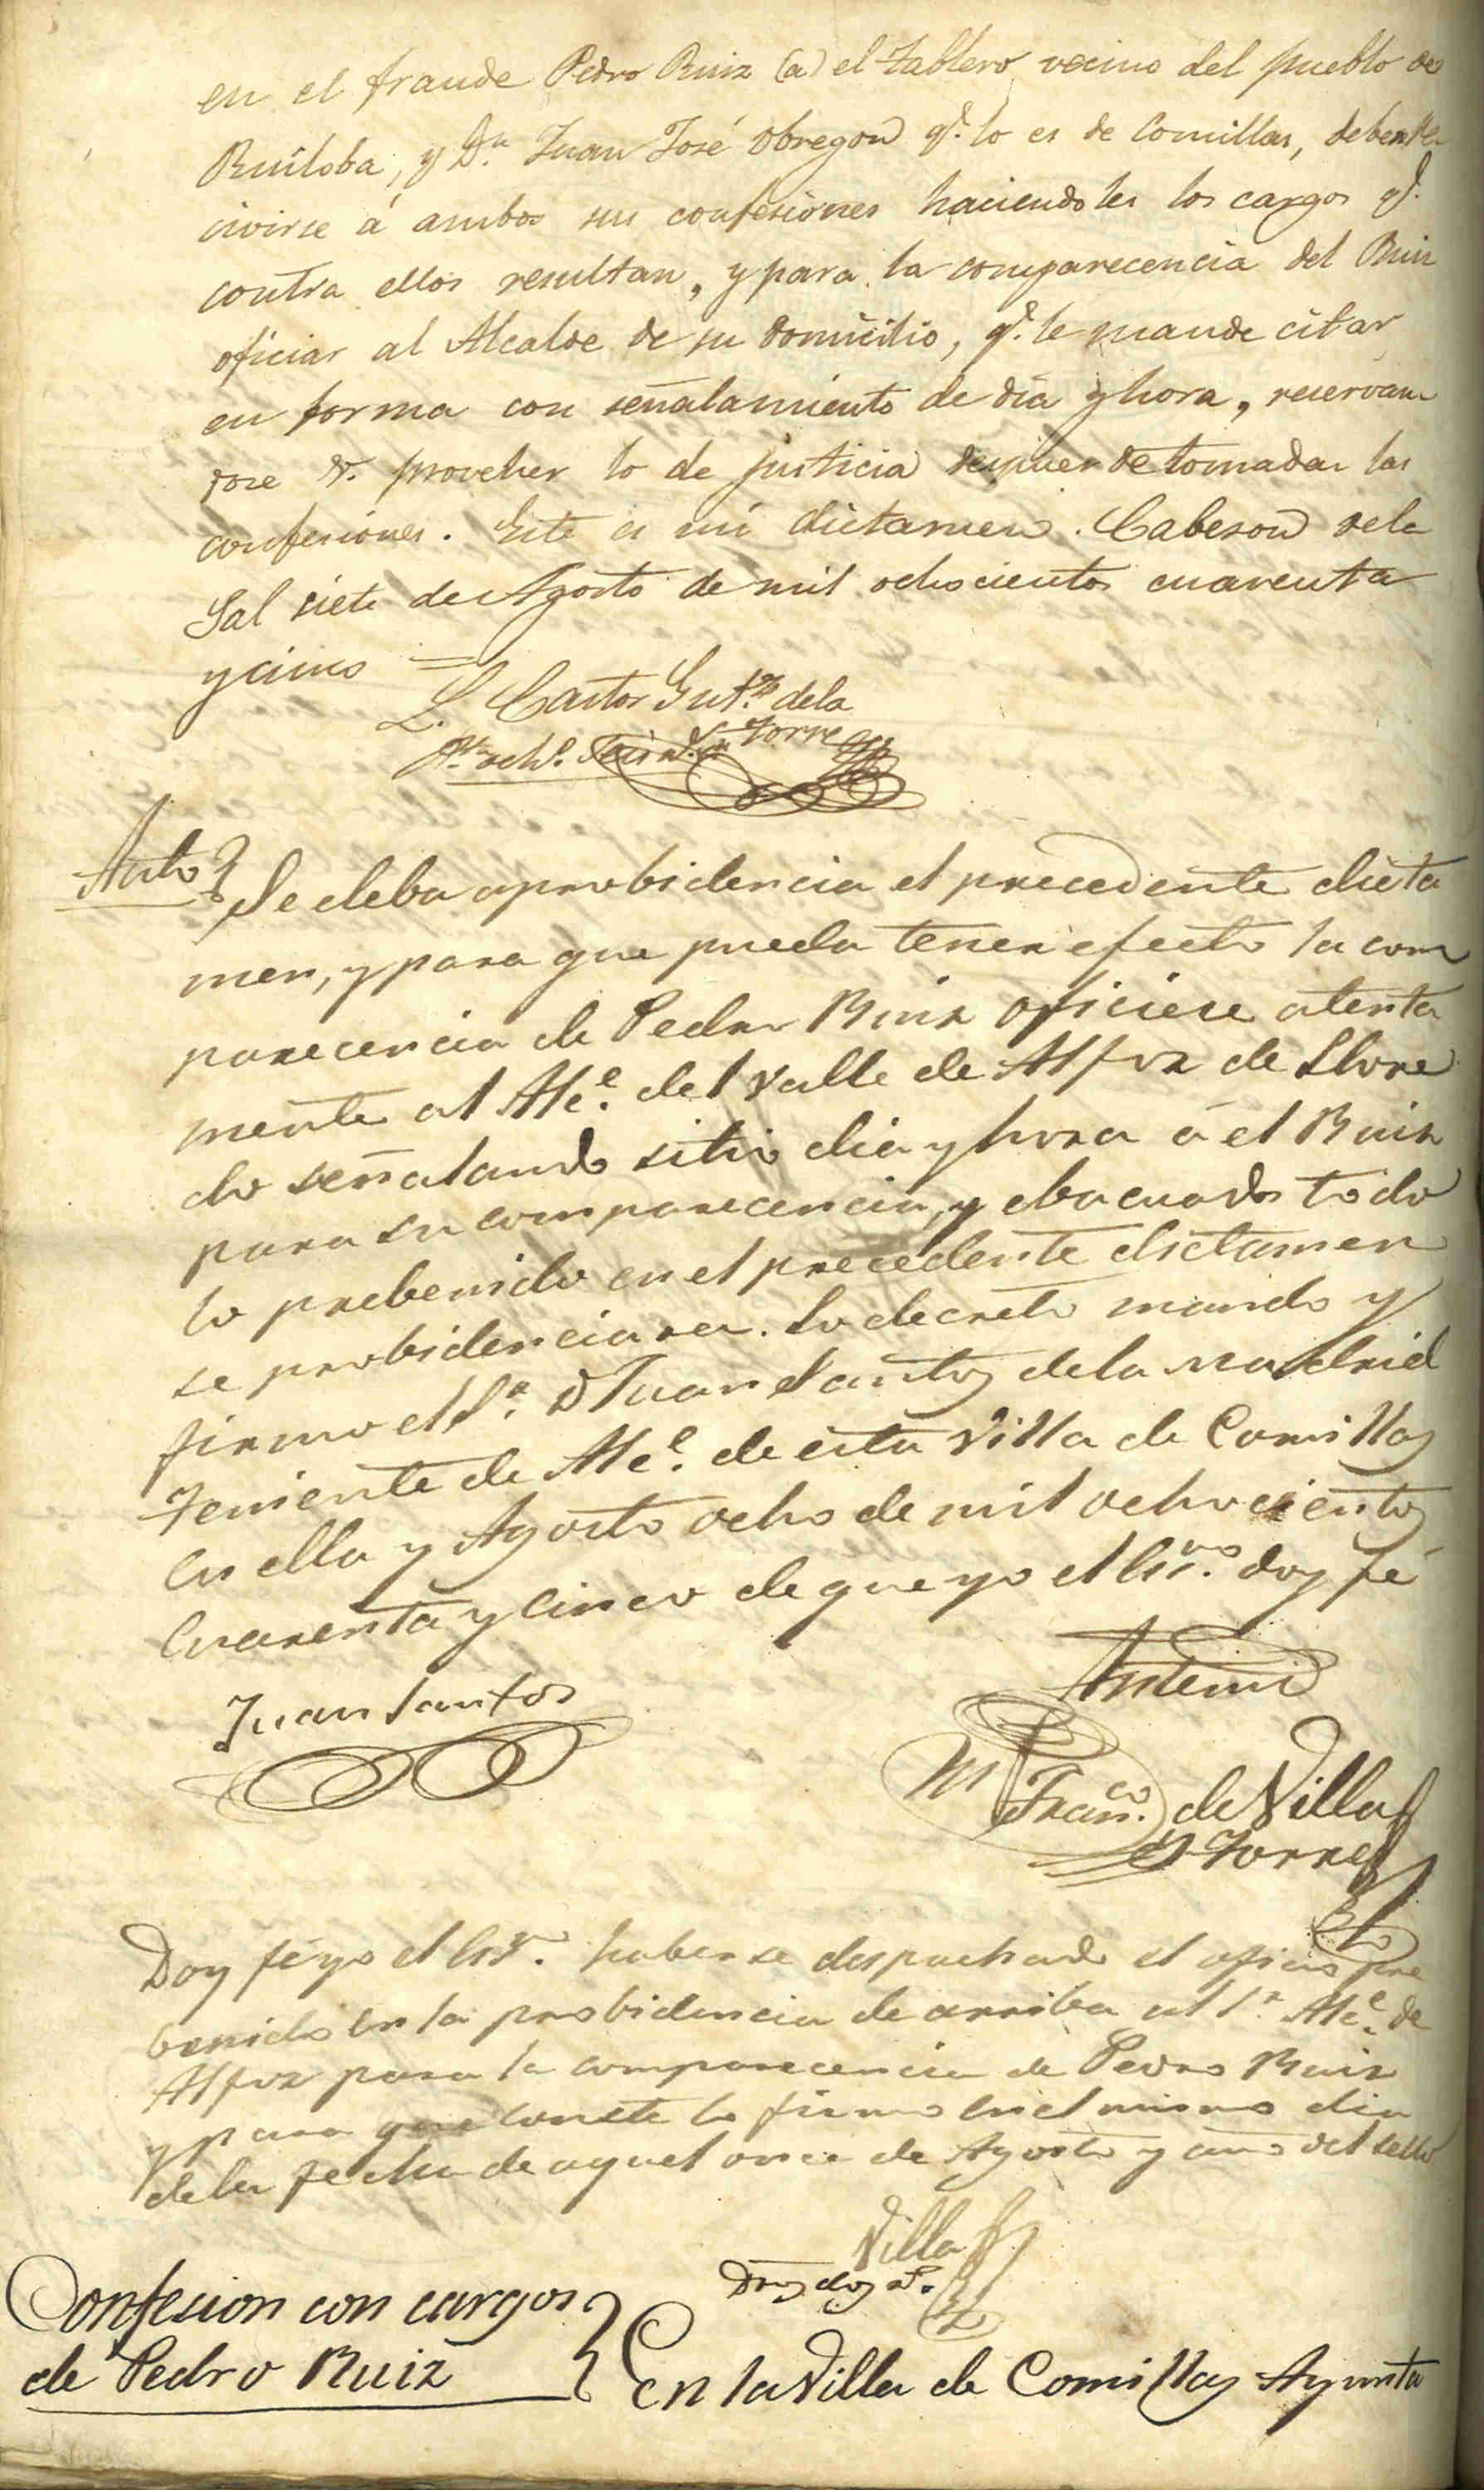 en el fraude Pedro Ruiz (a) el tablero vecino del pueblo de
Ruiloba, y D.n Juan José Obregon q.e lo es de Comillas, deben re-
civirse á ambos sus confesiones haciendoles los cargos q.e
contra ellos resultan, y para la comparecencia del Ruiz
oficiar al Alcalde de su domicilio, q.e le mande citar
en forma con señalamiento de dia y hora, reservan-
dose V. proveher lo de justicia despues de tomadas las
confesiones. Este es mi dictamen. Cabezon dela
Sal siete de Agosto de mil ochocientos cuarenta
y cinco =
L. Castor Gut.z dela
Torre
Auto
Se deba a probidencia el precedente dicta
men, y para que pueda tener efecto la com
parecencia de Pedro Ruiz oficiese atenta
mente al Alc.e del Valle de Alfoz de Llore
do señalando sitio dia y hora á el Ruiz
para su comparecencia, y ebacuado todo
lo prebenido en el precedente dictamen
se probidenciara. Lo decreto mando y
firmo el S.r D Juan Santos dela Madrid
Teniente de Alc.e de esta Villa de Comillas
En ella y Agosto ocho de mil ochocientos
Cuarenta y Cinco de que yo el Esc.no doy fé
Juan Santos
Antemi
M Fran.co de Villa
y Torre
Doy fé yo el Es.no haberse despachado el oficio pre
benido En la probidencia de arriba al S.r Alc.e de
Alfoz para la comparecencia de Pedro Ruiz
y para que Conste lo firmo En el mismo dia
dela fecha de aquel once de Agosto y año del sello
Villa
Dros dos r.s
Confesion con cargos
de Pedro Ruiz
En la Villa de Comillas Ayunta